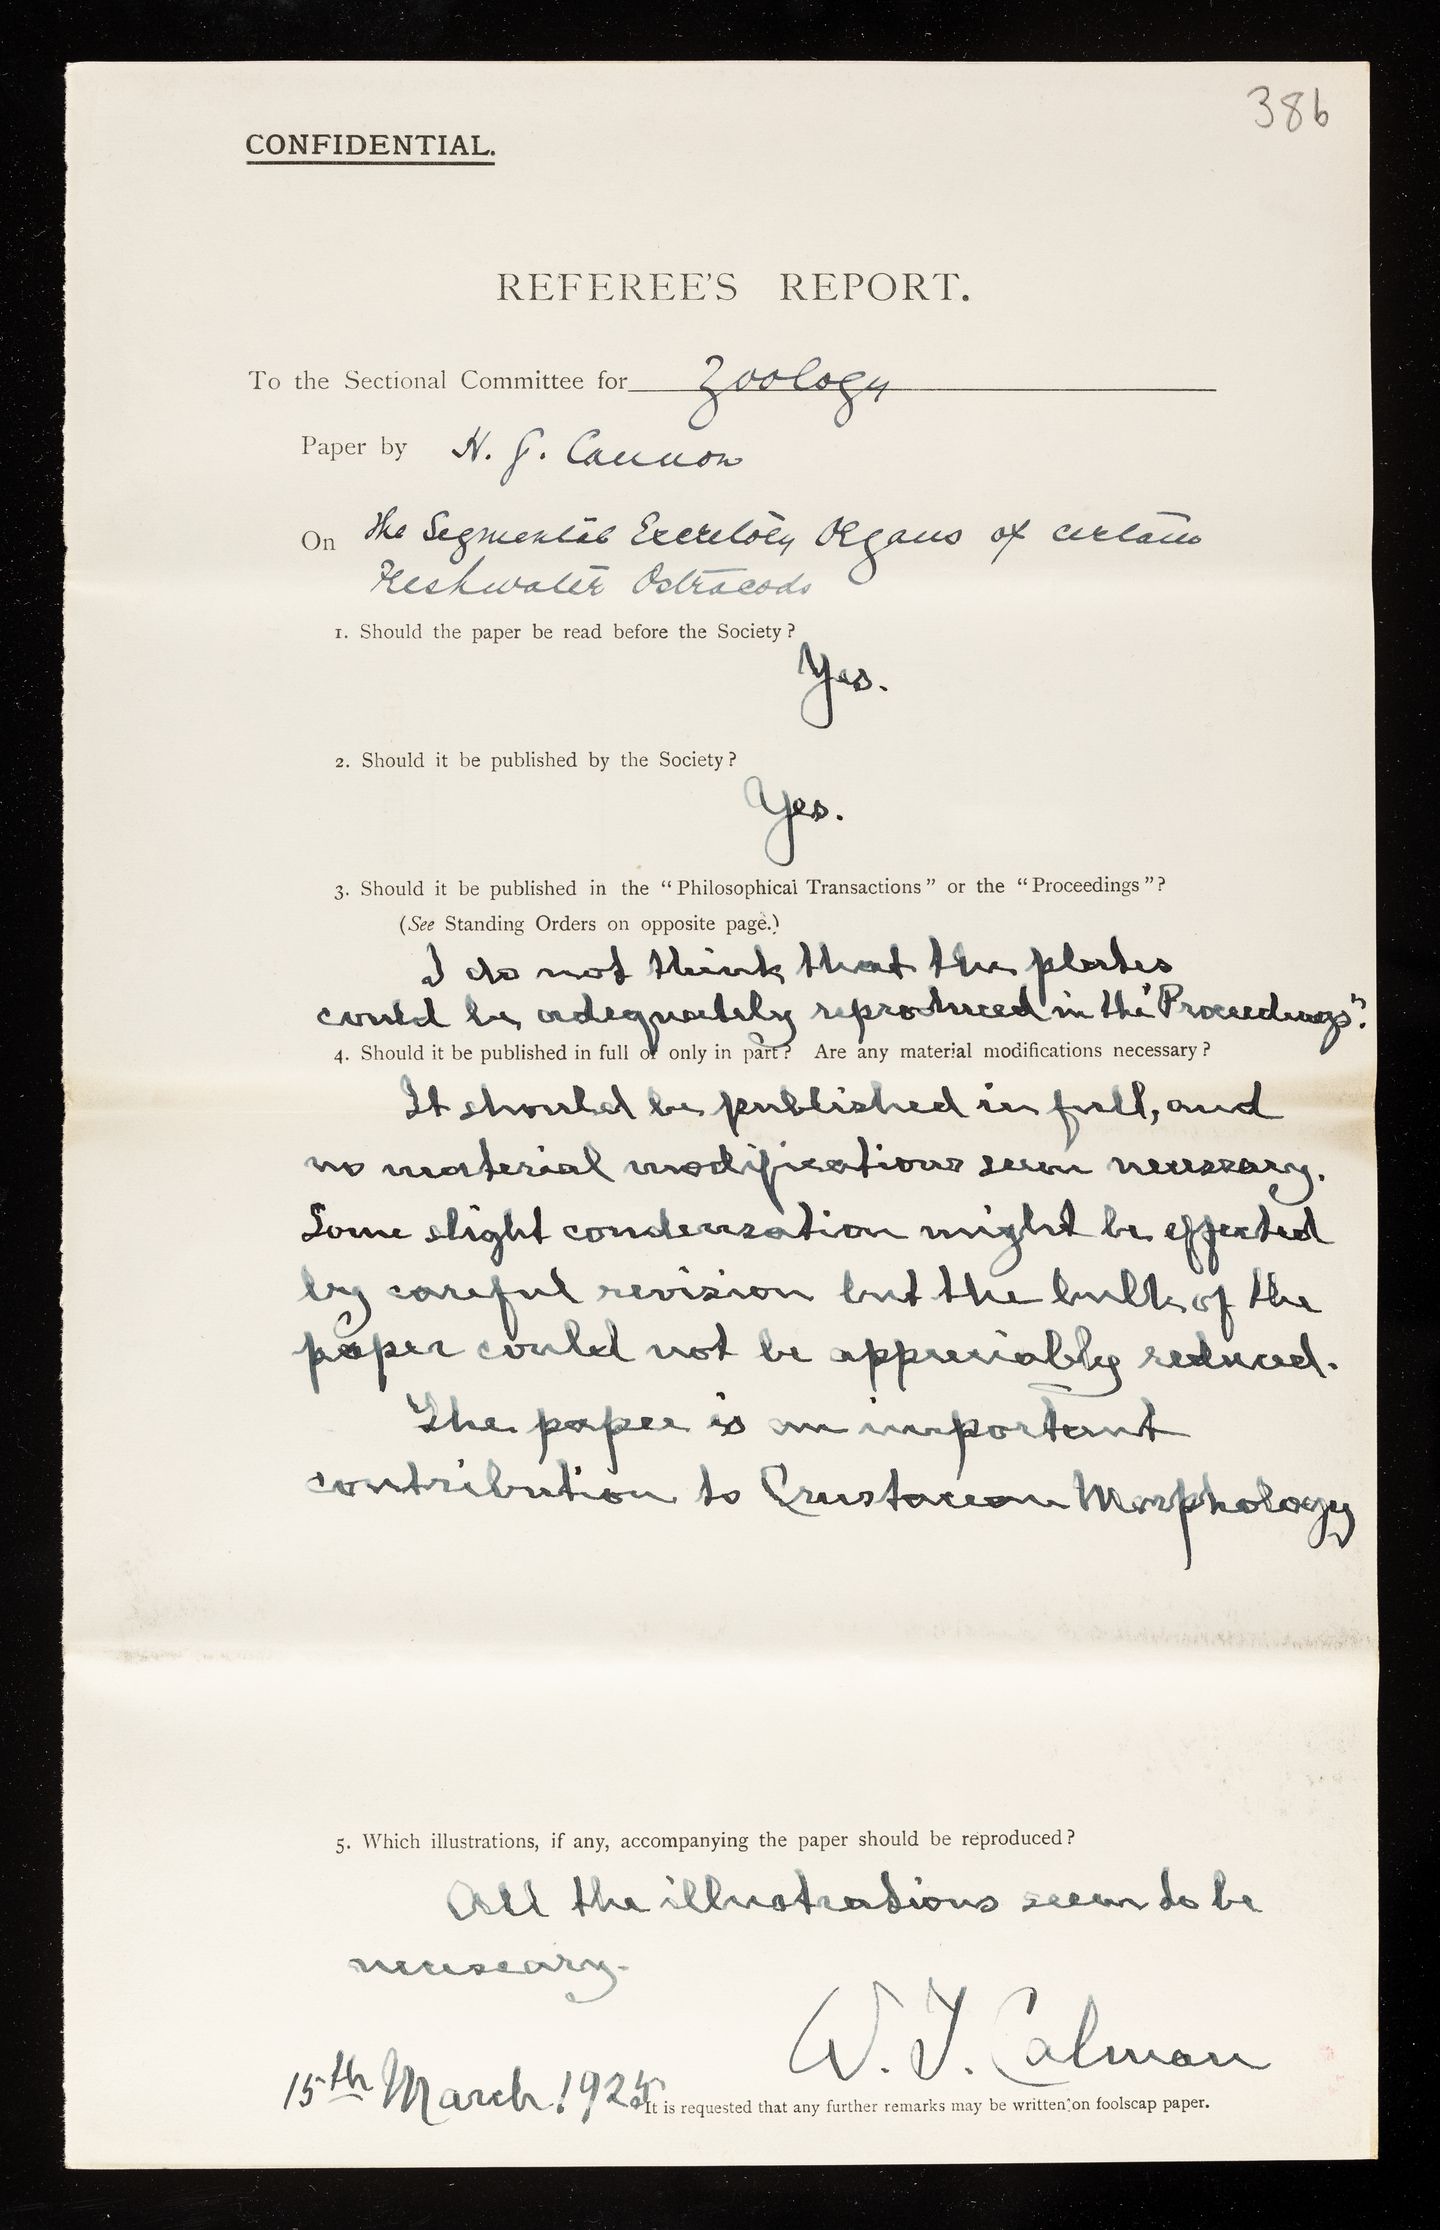 386
CONFIDENTIAL.
REFEREE'S REPORT.
To the Sectional Committee for Zoology
Paper by H. G. Cannon
On The Segmental Excretory Organs of certain
Freshwater Ostracods
1. Should the paper be read before the Society?
Yes.
2. Should it be published by the Society?
Yes.
3. Should it be published in the "Philosophical Transactions" or the "Proceedings"?
(See Standing Orders on opposite page.)
I do not think that the plates
could be adequately reproduced in the "Proceedings".
4. Should it be published in full or only in part? Are any material modifications necessary?
It should be published in full, and
no material modifications seem necessary.
Some slight condensation might be effected
by careful revision but the bulk of the
paper could not be appreciably reduced.
The paper is an important
contribution to Crustacean Morphology
5. Which illustrations, if any, accompanying the paper should be reproduced?
All the illustrations seem to be
necessary.
W. T. Calman
15th March 1925
It is requested that any further remarks may be written on foolscap paper.